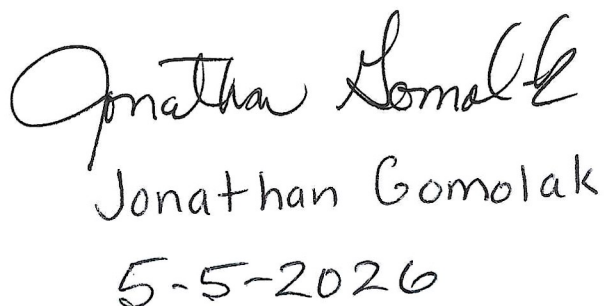 Jonathan Gomolak
Jonathan Gomolak
5-5-2026